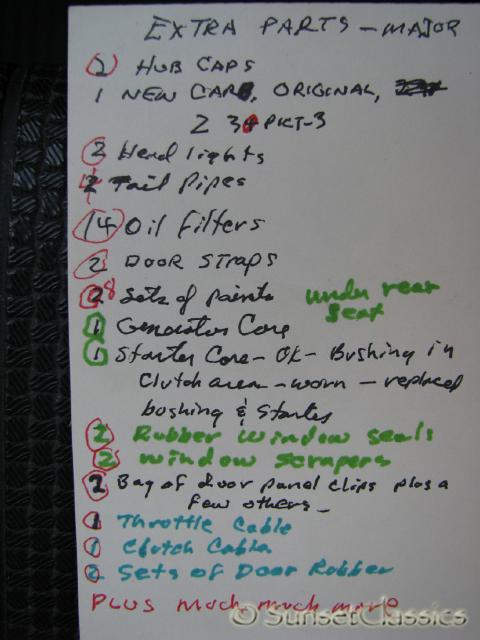 EXTRA PARTS - MAJOR
2 HUB CAPS
1 NEW CARB, ORIGINAL,
2 34 PICT-3
2 Head lights
Tail Pipes
14 Oil Filters
2 DOOR STRAPS
8 Sets of points under rear
seat
1 Generator Core
1 Starter Core - OK - Bushing in
Clutch area - worn - replaced
bushing & Starter
2 Rubber window seals
2 window scrapers
2 Bag of door panel clips plus a
few others -
1 Throttle Cable
1 Clutch Cable
2 Sets of Door Rubber
PLUS much, much more
© SunsetClassics